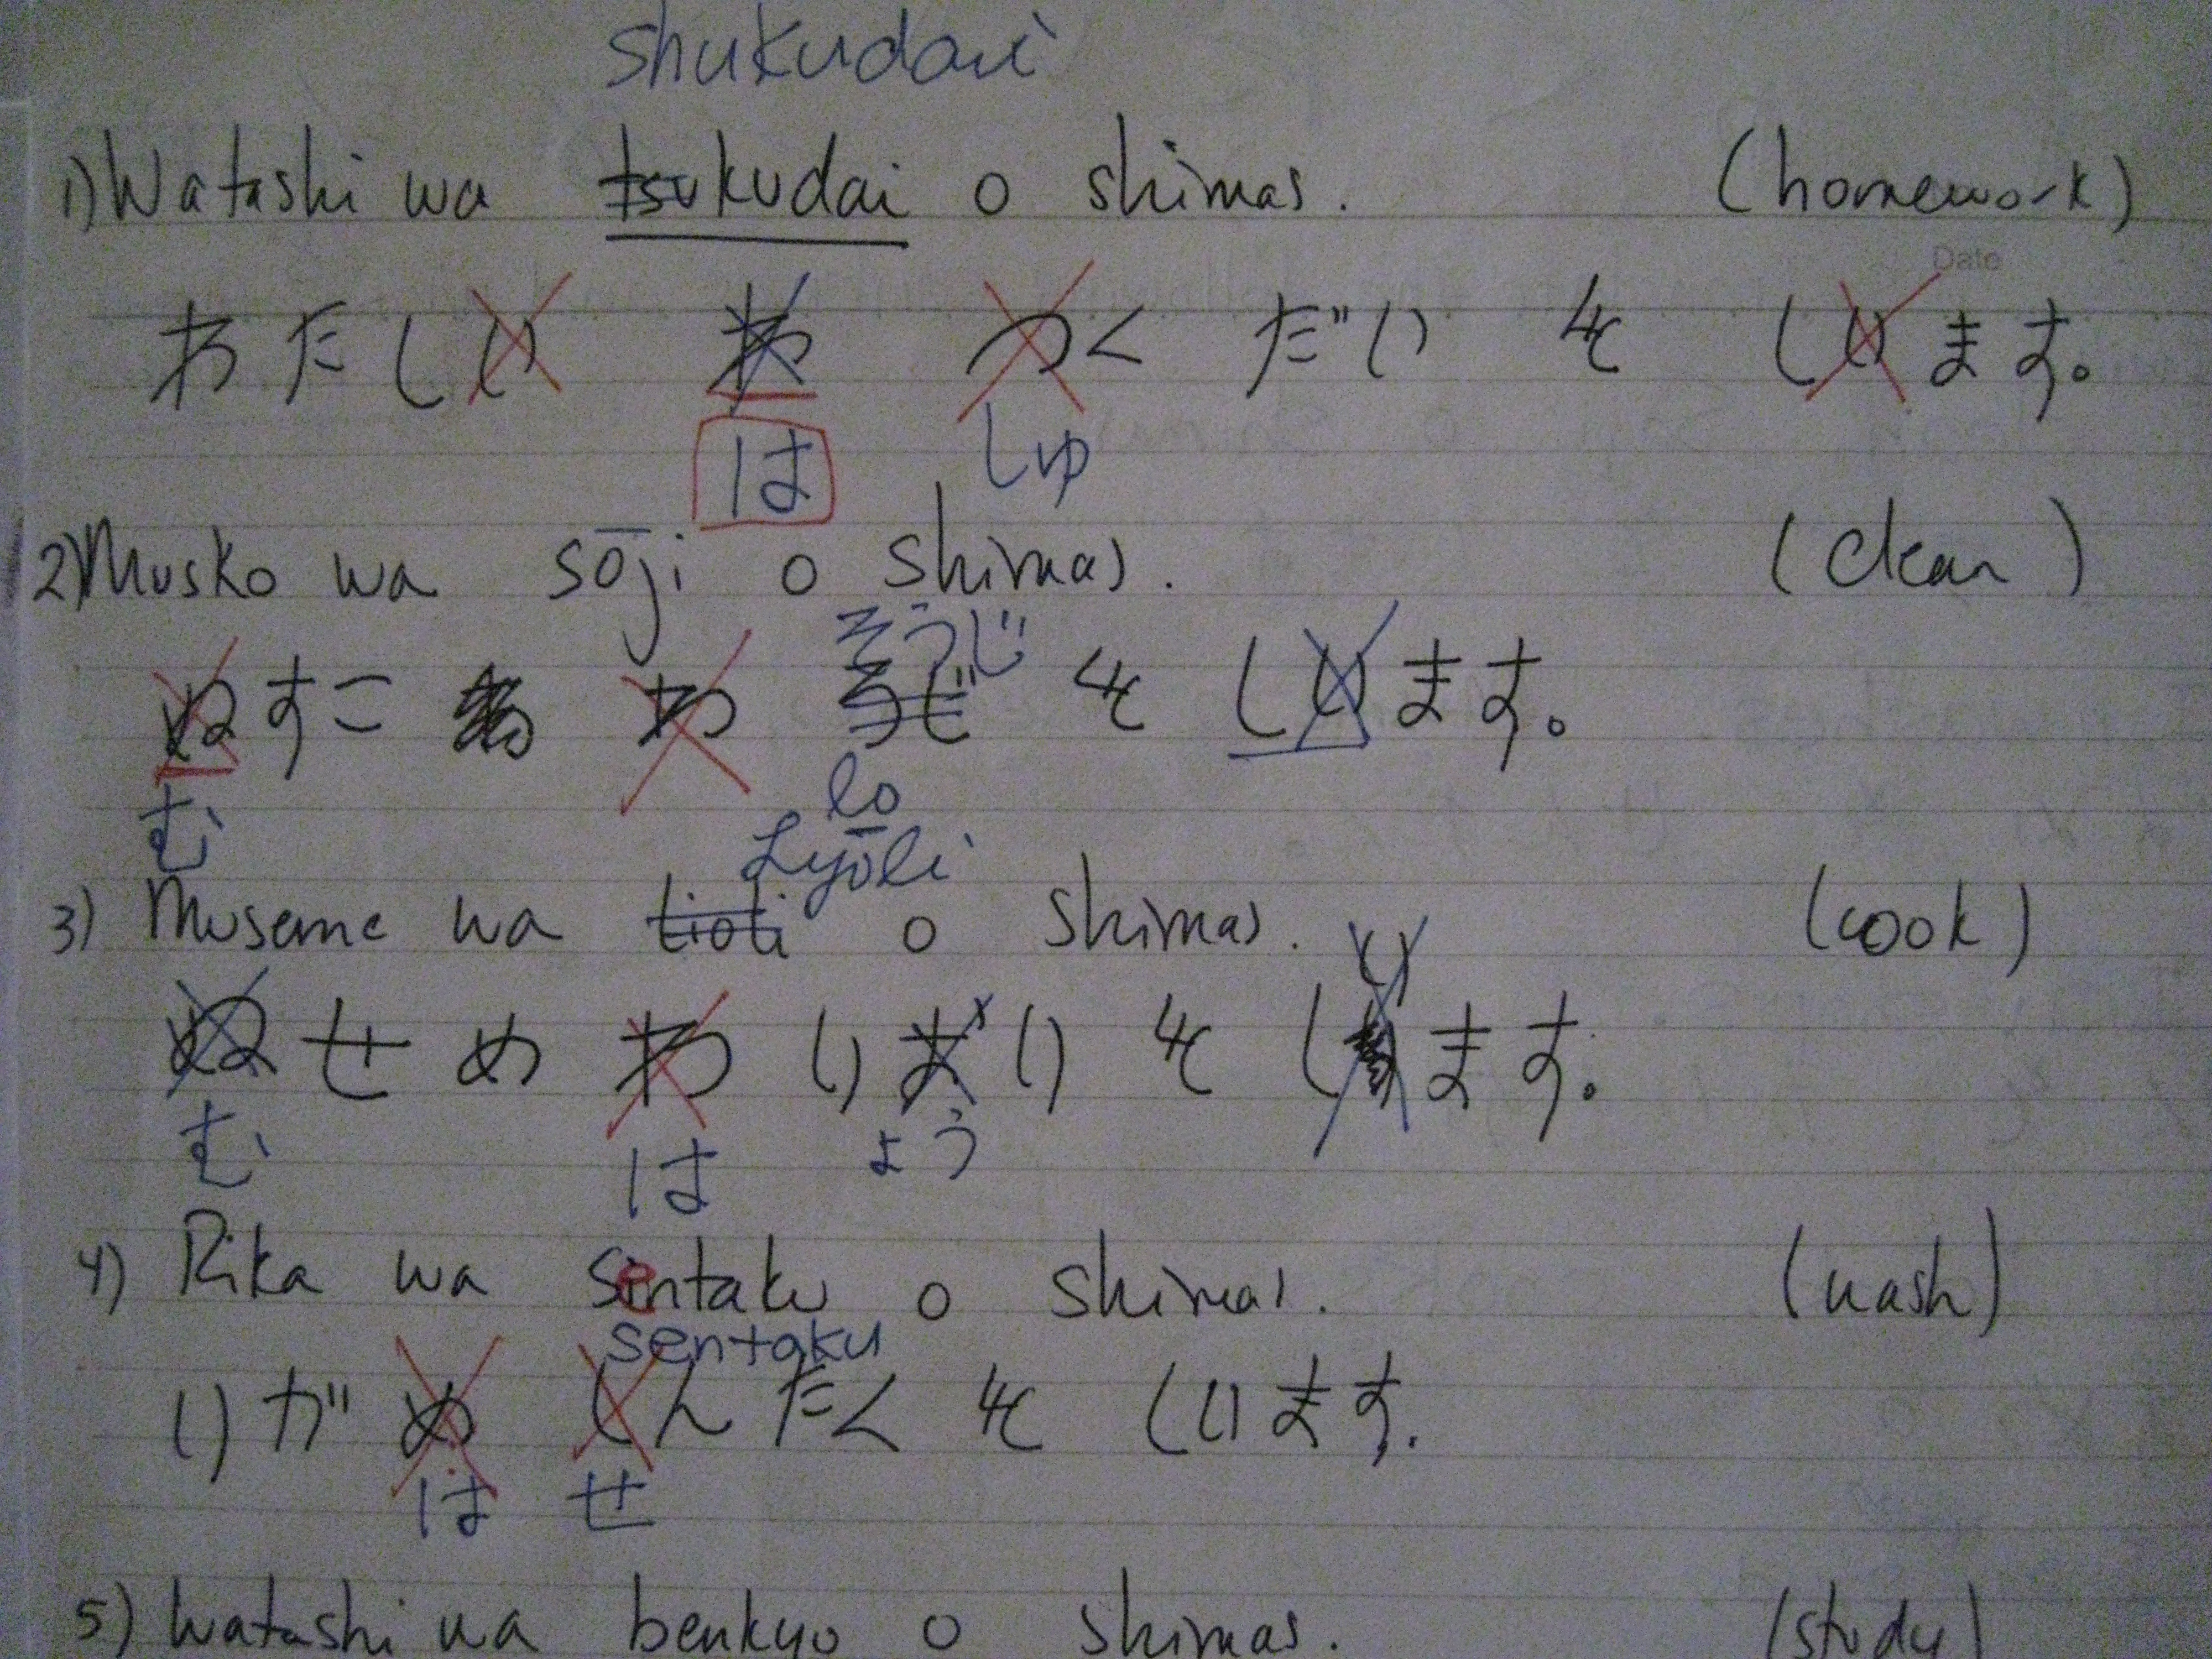 shukudai
1) Watashi wa tsukudai o shimas. (homework)
Date
わたしい わ つく だい を しいます。
は しゅ
2) Musko wa sōji o shimas. (clean)
そうじ
ぬすこ わ を しいます。
む
lo
Lyōli
3) Museme wa lioli o shimas. (cook)
い
ぬせめ わ りおり を します。
む は ょう
4) Rika wa sentaku o shimas. (wash)
sentaku
りが め しんたく を しいます.
は せ
5) Watashi wa benkyo o shimas. (study)